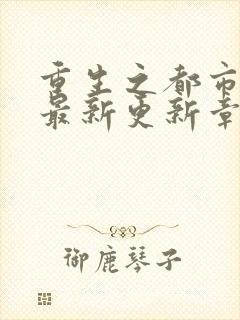 重生之都市
最新更新章
御鹿琴子